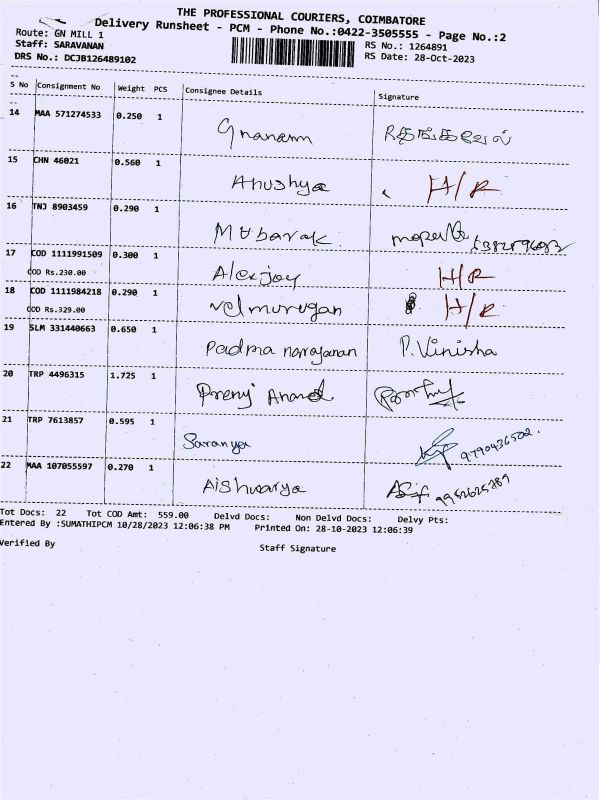 THE PROFESSIONAL COURIERS, COIMBATORE
Delivery Runsheet - PCM - Phone No.:0422-3505555 - Page No.:2
Route: GN MILL 1 RS No.: 1264891
Staff: SARAVANAN RS Date: 28-Oct-2023
DRS No.: DCJB126489102
S No Consignment No Weight PCS Consignee Details Signature
14 MAA 571274533 0.250 1 Gnanam
15 CHN 46021 0.560 1 Anushya H/R
16 TNJ 8903459 0.290 1 Mubarak
17 COD 1111991509 0.300 1 Alexjoy H/R
COD Rs.230.00
18 COD 1111984218 0.290 1 Velmurugan H/R
COD Rs.329.00
19 SLM 331440663 0.650 1 Padma narayanan P. Vinisha
20 TRP 4496315 1.725 1 Anand
21 TRP 7613857 0.595 1 Saranya 9790436502.
22 MAA 107055597 0.270 1 Aishwarya
Tot Docs: 22 Tot COD Amt: 559.00 Delvd Docs: Non Delvd Docs: Delvy Pts:
Entered By :SUMATHIPCM 10/28/2023 12:06:38 PM Printed On: 28-10-2023 12:06:39
Verified By Staff Signature